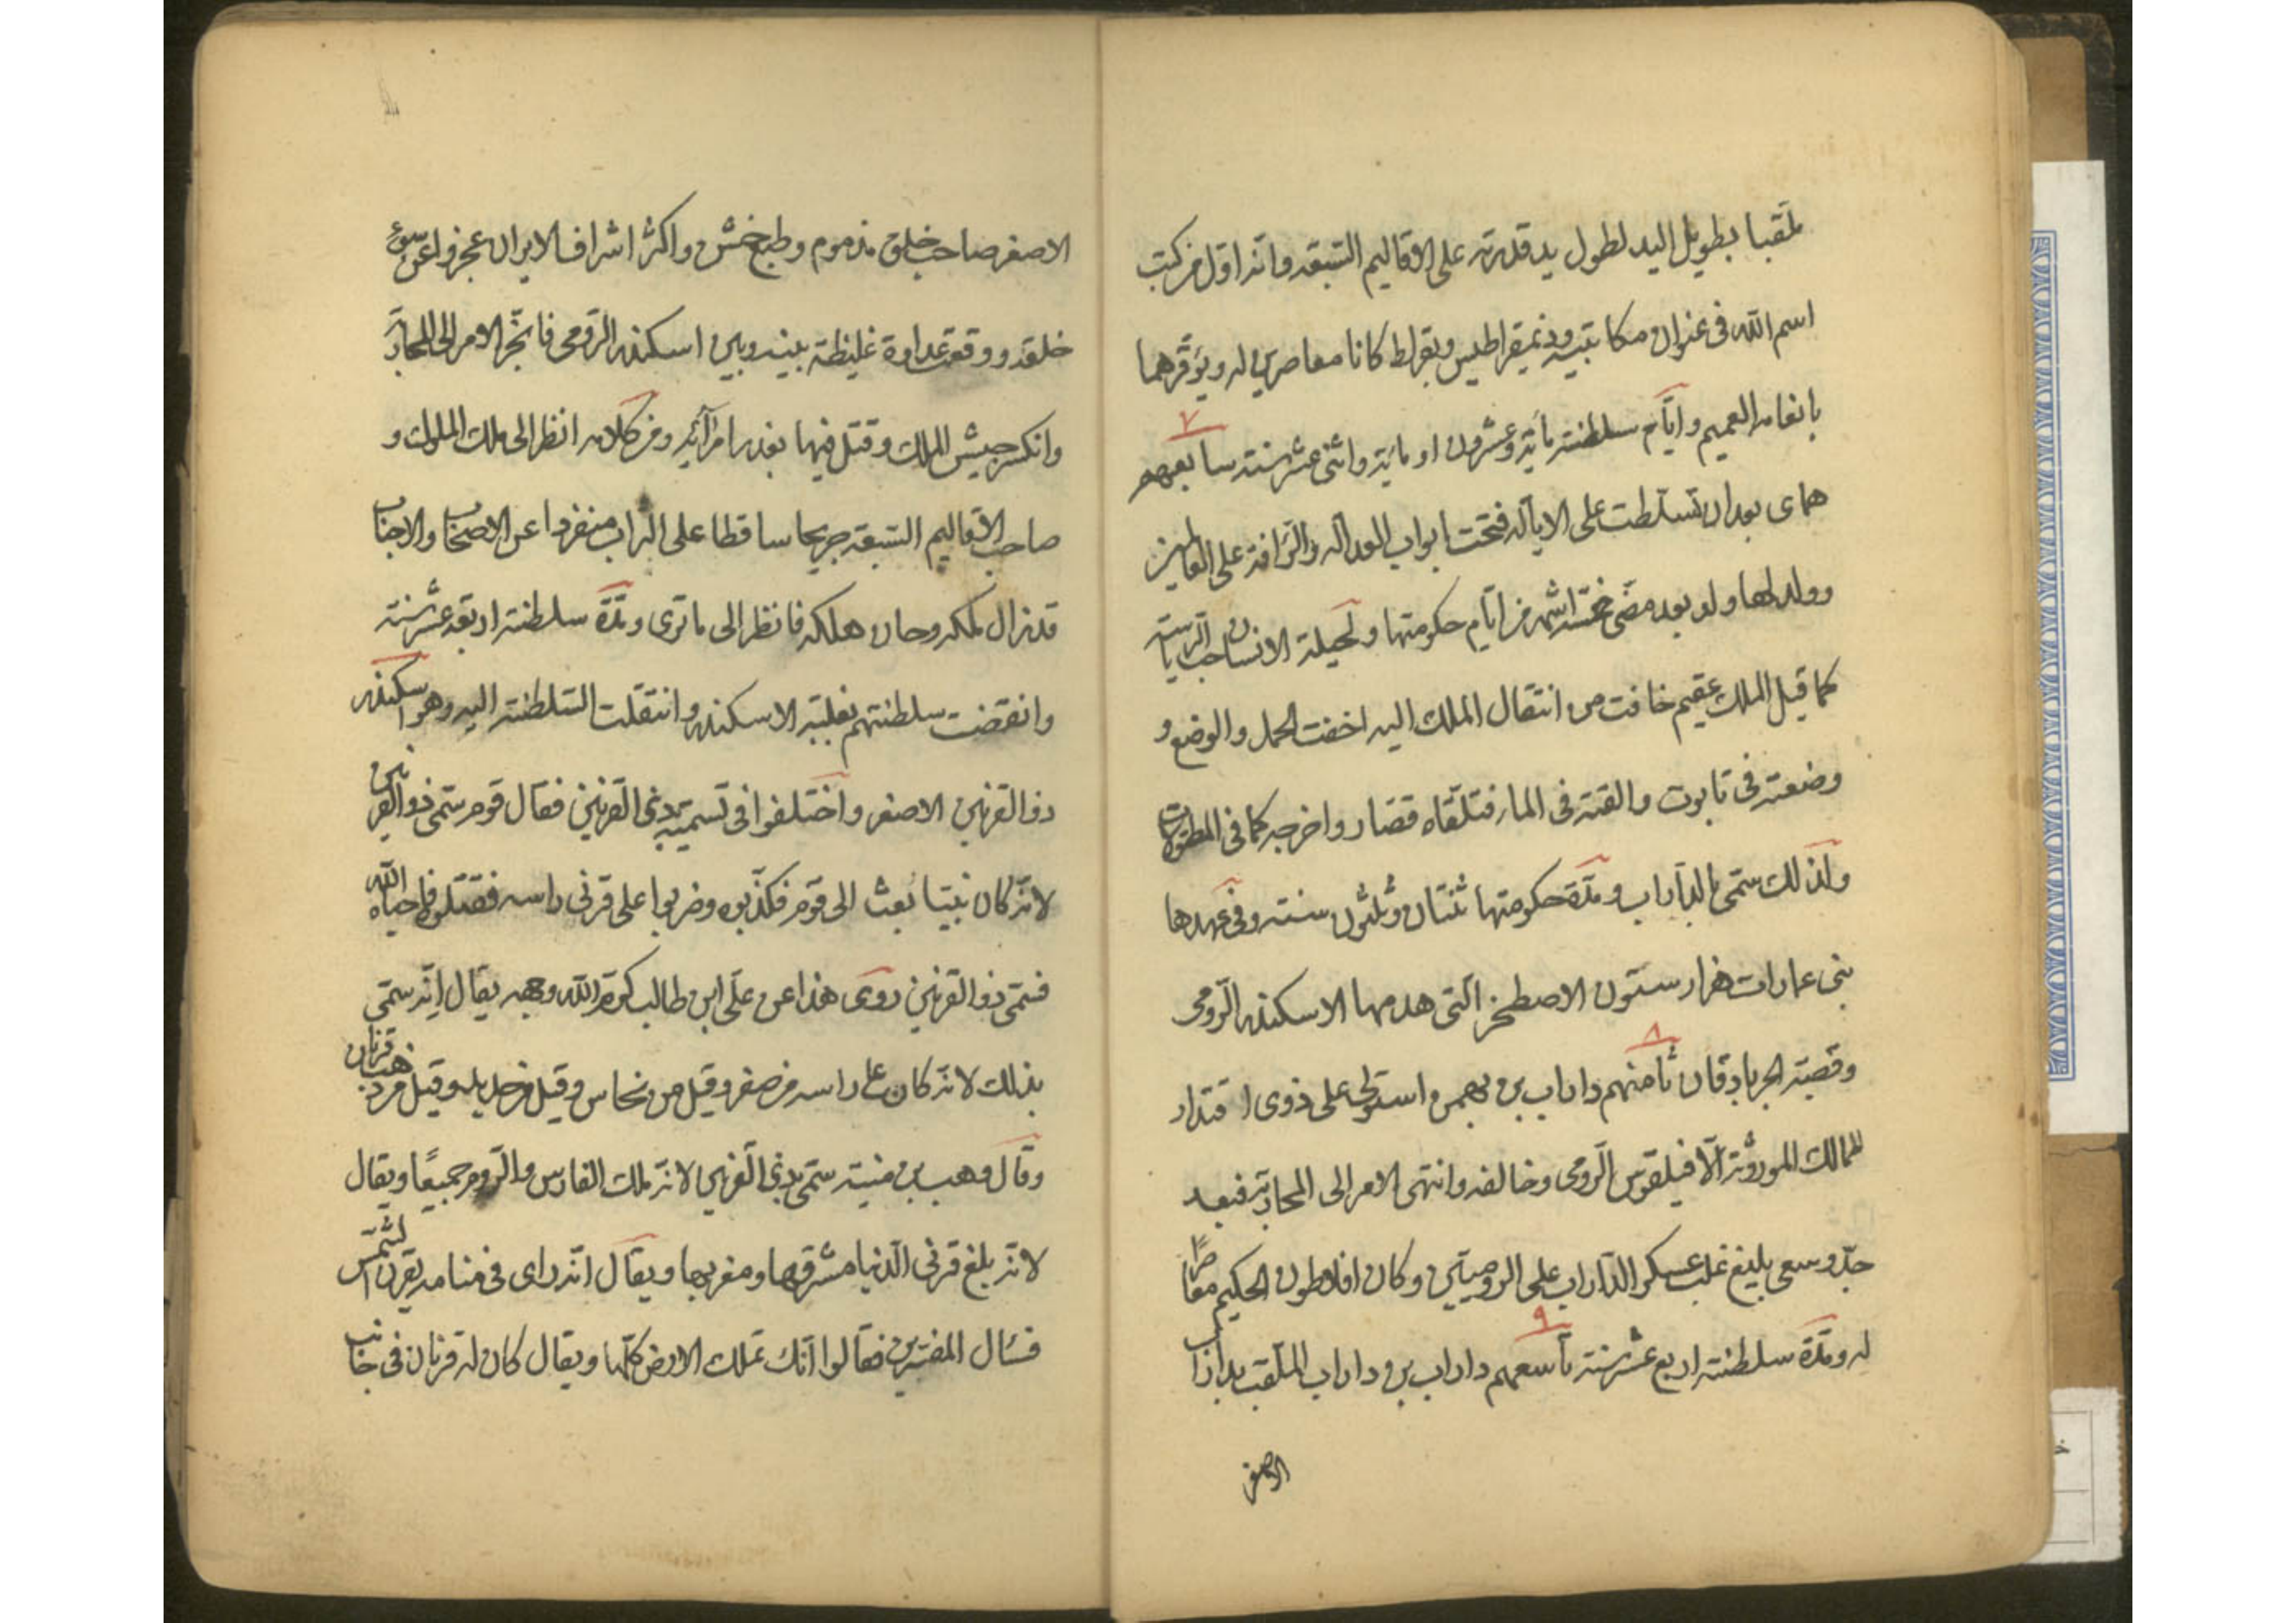 ملقبا بطويل اليد لطول يد قدرته على الاقاليم السبعة وانه اول من كتب
اسم الله فى عنوان مكاتبيه وذيمقراطيس وبقراط كانا معاصرين له ويوقرهما
بانعامه العميم وايام سلطنته مأية وعشرون او مأية واثنى عشر سنة سابعهم
۷
هماى بعد ان تسلطت على الايالة فتحت ابواب المعدالة والرافة على العالمين
وولد لها ولد بعد مضى خمسة اشهر من ايام حكومتها ولحيلة الانسان حب الرياسة
كما قيل الملك عقيم خافت من انتقال الملك اليه اخفت الحمل والوضع و
وضعته فى تابوت والقته فى الماء فتلقاه قصار واخرجه كما فى المطولات
ولذلك سمى بالداراب ومدة حكومتها ثنتان وثلثون سنة وفى عهدها
بنى عمارات هزار ستون الاصطخر التى هدمها الاسكندر الرومى
وقصبة الجربادقان ثامنهم داراب بن بهمن استولى على ذوى اقتدار
۸
الممالك الموروثة الا فيلقوس الرومى وخالفه وانتهى الامر الى المحاربة فبعد
جد وسعى بليغ غلب عسكر الداراب على الروميين وكان افلاطون الحكيم معاصرا
له ومدة سلطنته اربع عشر سنة تاسعهم داراب بن داراب الملقب بداراب
۹
الاصغر
الاصغر صاحب خلق مذموم وطبع خشن واكثر اشراف الايران عجزوا عن سوء
خلقه ووقعت عداوة غليظة بينه وبين اسكندر الرومى فانجر الامر الى المحاربة
وانكسر جيش الملك وقتل فيها بغدر امرائه ومن كلامه انظر الى ملك الملوك و
صاحب الاقاليم السبعة جريحا ساقطا على التراب منفردا عن الاصحاب والاجناب
قد زال ملكه وحان هلكه فانظر الى ما ترى ومدة سلطنته اربعة عشر سنة
وانقضت سلطنتهم بغلبة الاسكندر وانتقلت السلطنة اليه وهو اسكندر
ذو القرنين الاصغر واختلفوا فى تسميته بذى القرنين فقال قوم سمى ذو القرنين
لانه كان نبيا بعث الى قوم فكذبوه وضربوا على قرنى راسه فقتلوه فاحياه الله
فسمى ذو القرنين روى هذا عن على ابن طالب كرم الله وجهه يقال انه سمى
بذلك لانه كان على راسه من صفر وقيل من نحاس وقيل من حديد وقيل من ذهب قرنان
وقال وهب بن منبه سمى بذى القرنين لانه ملك الفارس والروم جميعا ويقال
لانه بلغ قرنى الدنيا مشرقها ومغربها ويقال انه راى فى منامه بقرن الشمس
فسئال المفسرين فقالوا انك تملك الارض كلها ويقال كان له قرنان فى جانب